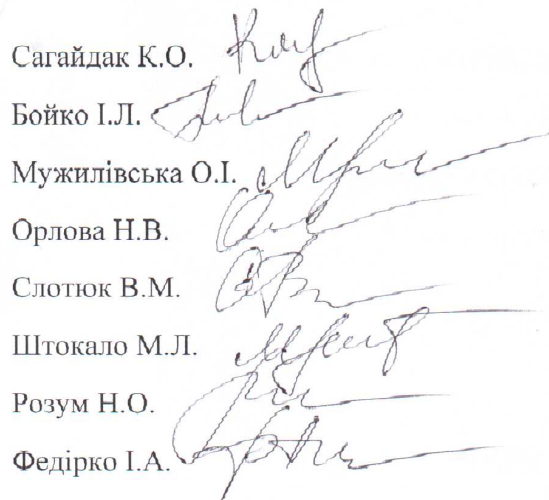 Сагайдак К.О.
Бойко І.Л.
Мужилівська О.І.
Орлова Н.В.
Слотюк В.М.
Штокало М.Л.
Розум Н.О.
Федірко І.А.